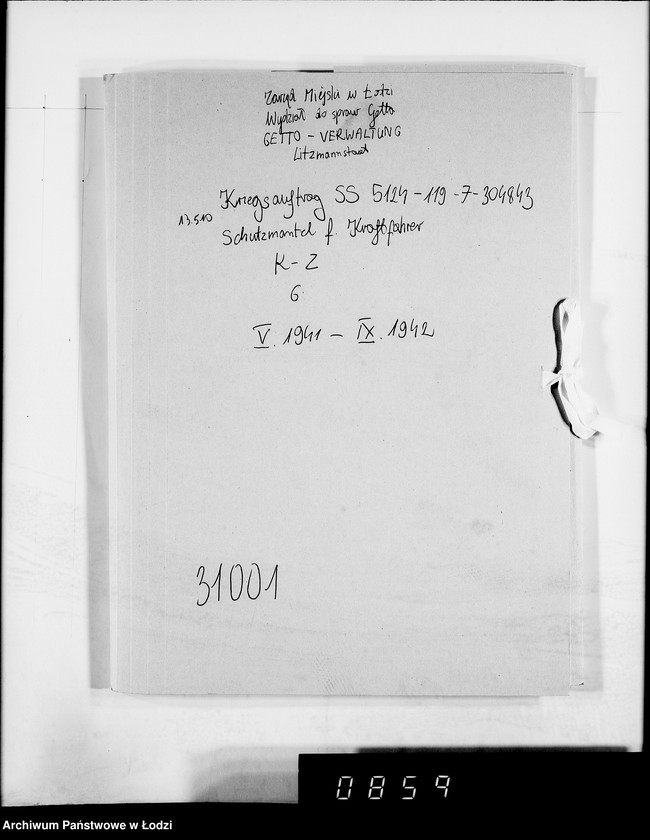 Zarząd Miejski w Łodzi
Wydział do spraw Getta
GETTO - VERWALTUNG
Litzmannstadt
Kriegsauftrag SS 5124-119-7-304843
13.510
Schutzmantel f. Kraftfahrer
K-Z
6.
V. 1941 - IX. 1942
31001
0859
Archiwum Państwowe w Łodzi